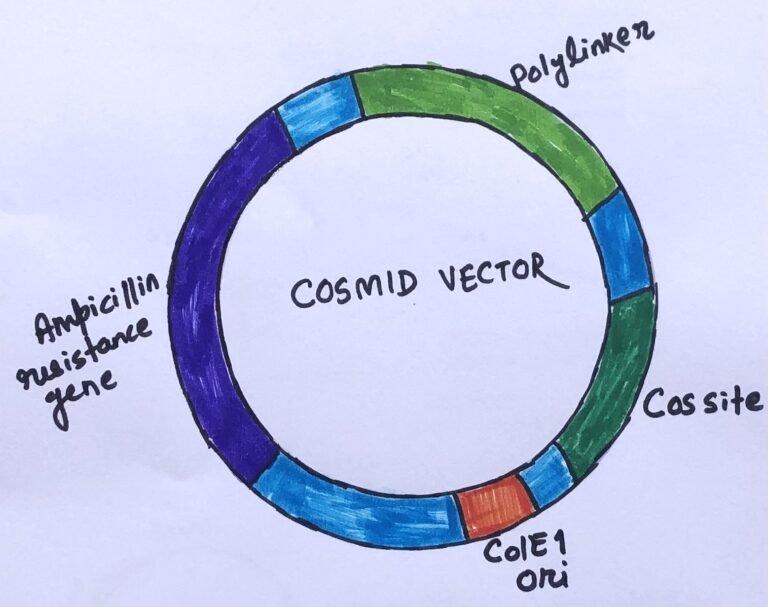 Polylinker
COSMID VECTOR
Ampicillin
resistance
gene
Cos site
ColE1
Ori